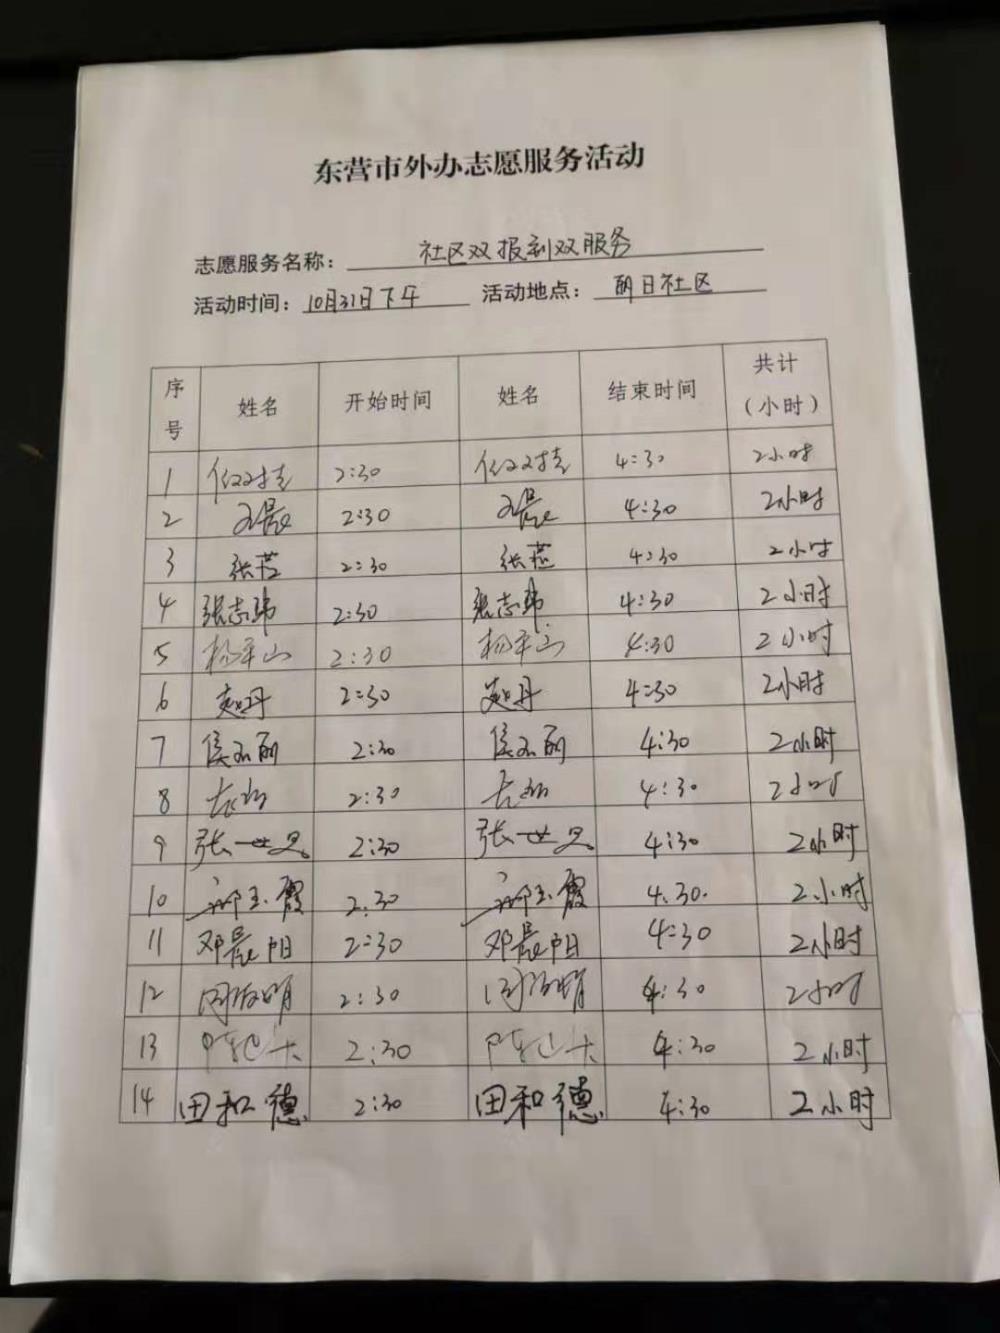 东营市外办志愿服务活动
志愿服务名称：社区双报到双服务
活动时间：10月31日下午 活动地点：明日社区
序号 姓名 开始时间 姓名 结束时间 共计（小时）
1 2:30 4:30 2小时
2 2:30 4:30 2小时
3 张 2:30 张 4:30 2小时
4 张志玮 2:30 张志玮 4:30 2小时
5 杨平山 2:30 杨平山 4:30 2小时
6 赵丹 2:30 赵丹 4:30 2小时
7 侯玉丽 2:30 侯玉丽 4:30 2小时
8 2:30 4:30 2小时
9 张一 2:30 张一 4:30 2小时
10 玉霞 2:30 玉霞 4:30. 2小时
11 邓晨阳 2:30 邓晨阳 4:30 2小时
12 周 2:30 周 4:30 2小时
13 陈 2:30 陈 4:30 2小时
14 田和德 2:30 田和德 4:30 2小时